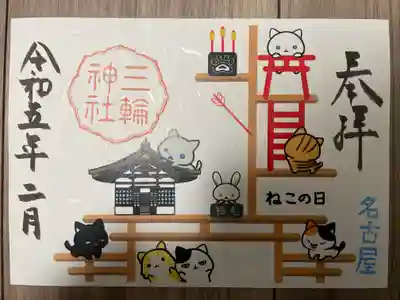 奉拝
名古屋
ねこの日
三輪
神社
令和五年二月